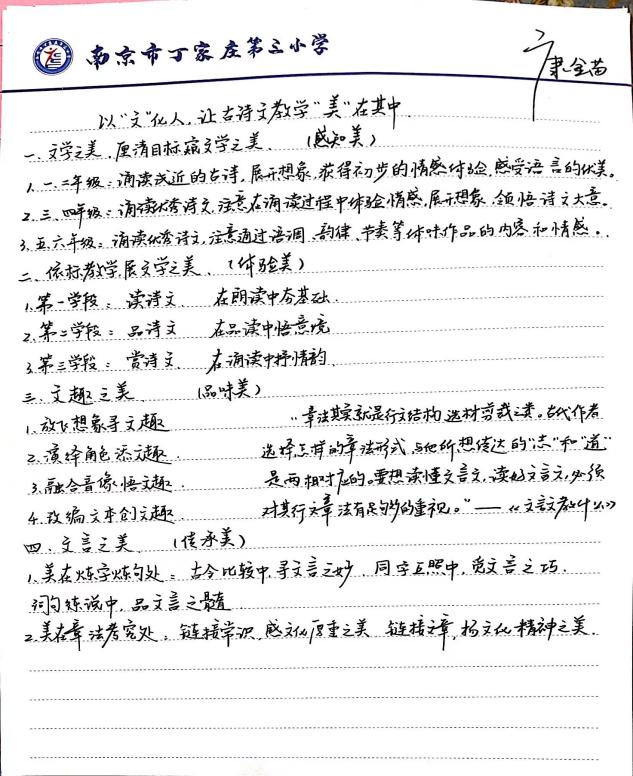 南京市丁家庄第三小学
康金苗
以“文”化人,让古诗文教学“美”在其中.
一、文学之美,厘清目标窥文学之美. (感知美)
1.一、二年级:诵读浅近的古诗,展开想象,获得初步的情感体验,感受语言的优美。
2.三、四年级:诵读优秀诗文,注意在诵读过程中体验情感,展开想象,领悟诗文大意。
3.五六年级:诵读优秀诗文,注意通过语调、韵律、节奏等体味作品的内容和情感。
二、依标教学,展文学之美、(体验美)
1.第一学段:读诗文 在朗读中夯基础.
2.第二学段:品诗文 在品读中悟意境
3.第三学段:赏诗文. 在诵读中抒情韵.
三、文趣之美 (品味美)
1.放飞想象寻文趣
2.演绎角色添文趣.
3.融合音像悟文趣.
4.改编文本创文趣.
“章法其实就是行文结构、选材剪裁之类。古代作者
选择怎样的章法形式,与他所想传达的“志”和“道”
是两相对应的。要想读懂文言文,读好文言文,必须
对其行文章法有足够的重视。”——《文言文教什么》
四、文言之美 (传承美)
1.美在炼字炼句处:古今比较中,寻文言之妙 同字互照中,觅文言之巧.
词句练说中,品文言之髓
2.美在章法考究处:链接常识,感文化厚重之美 链接文章,扬文化精神之美.